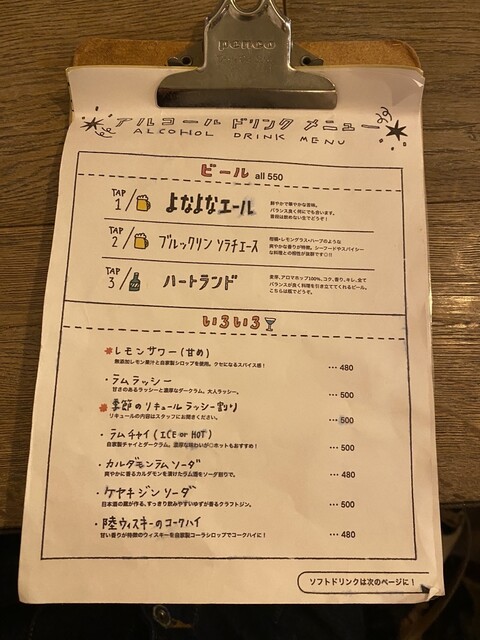 penco
アルコールドリンクメニュー
ALCOHOL DRINK MENU
ビール all 550
TAP 1/ よなよなエール
鮮やかで華やかな苦味。
バランス良く何にでも合います。
普段は飲めない生でどうぞ！
TAP 2/ ブルックリン ソラチエース
柑橘・レモングラス・ハーブのような
爽やかな香りが特徴。シーフードやスパイシー
な料理との相性が抜群です◎!!
TAP 3/ ハートランド
麦芽、アロマホップ100%、コク、香り、キレ、全て
バランスが良く料理を引き立ててくれるビール。
こちらは瓶でどうぞ。
いろいろ
レモンサワー(甘め)
無添加レモン果汁と自家製シロップを使用。クセになるスパイス感！ … 480
・ラムラッシー
甘さのあるラッシーと濃厚なダークラム。大人ラッシー。 … 500
季節のリキュールラッシー割り
リキュールの内容はスタッフにお聞きください。 … 500
・ラムチャイ(ICE or HOT)
自家製チャイとダークラム。濃厚な味わいが◎ホットもおすすめ！ … 500
・カルダモンラムソーダ
爽やかに香るカルダモンを漬けたラム酒をソーダ割りで。 … 480
・ケヤキジンソーダ
日本酒の蔵が作る、すっきり飲みやすいゆずが香るクラフトジン。 … 500
・陸ウィスキーのコークハイ
甘い香りが特徴のウィスキーを自家製コーラシロップでコークハイに！ … 480
ソフトドリンクは次のページに！